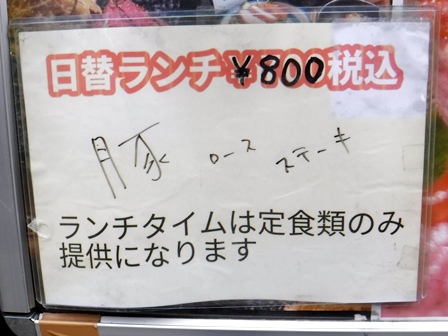 日替ランチ¥800税込
豚 ロース ステーキ
ランチタイムは定食類のみ
提供になります